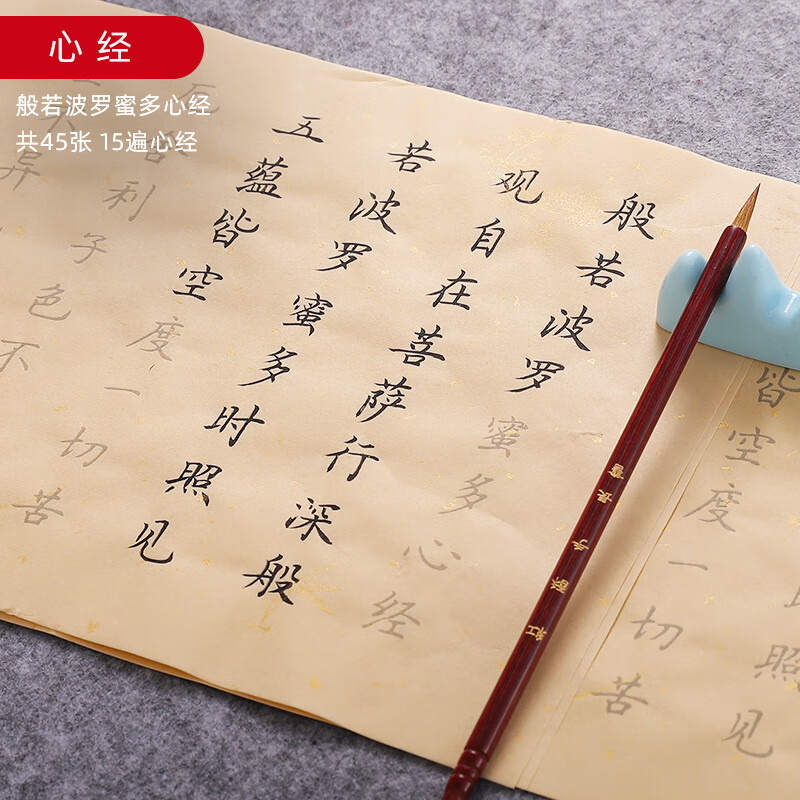 心经
般若波罗蜜多心经
共45张 15遍心经
般若波罗蜜多心经
观自在菩萨行深般
若波罗蜜多时照见
五蕴皆空度一切苦
厄舍利子色不
不异
照见
皆空度一切苦
紅酥手